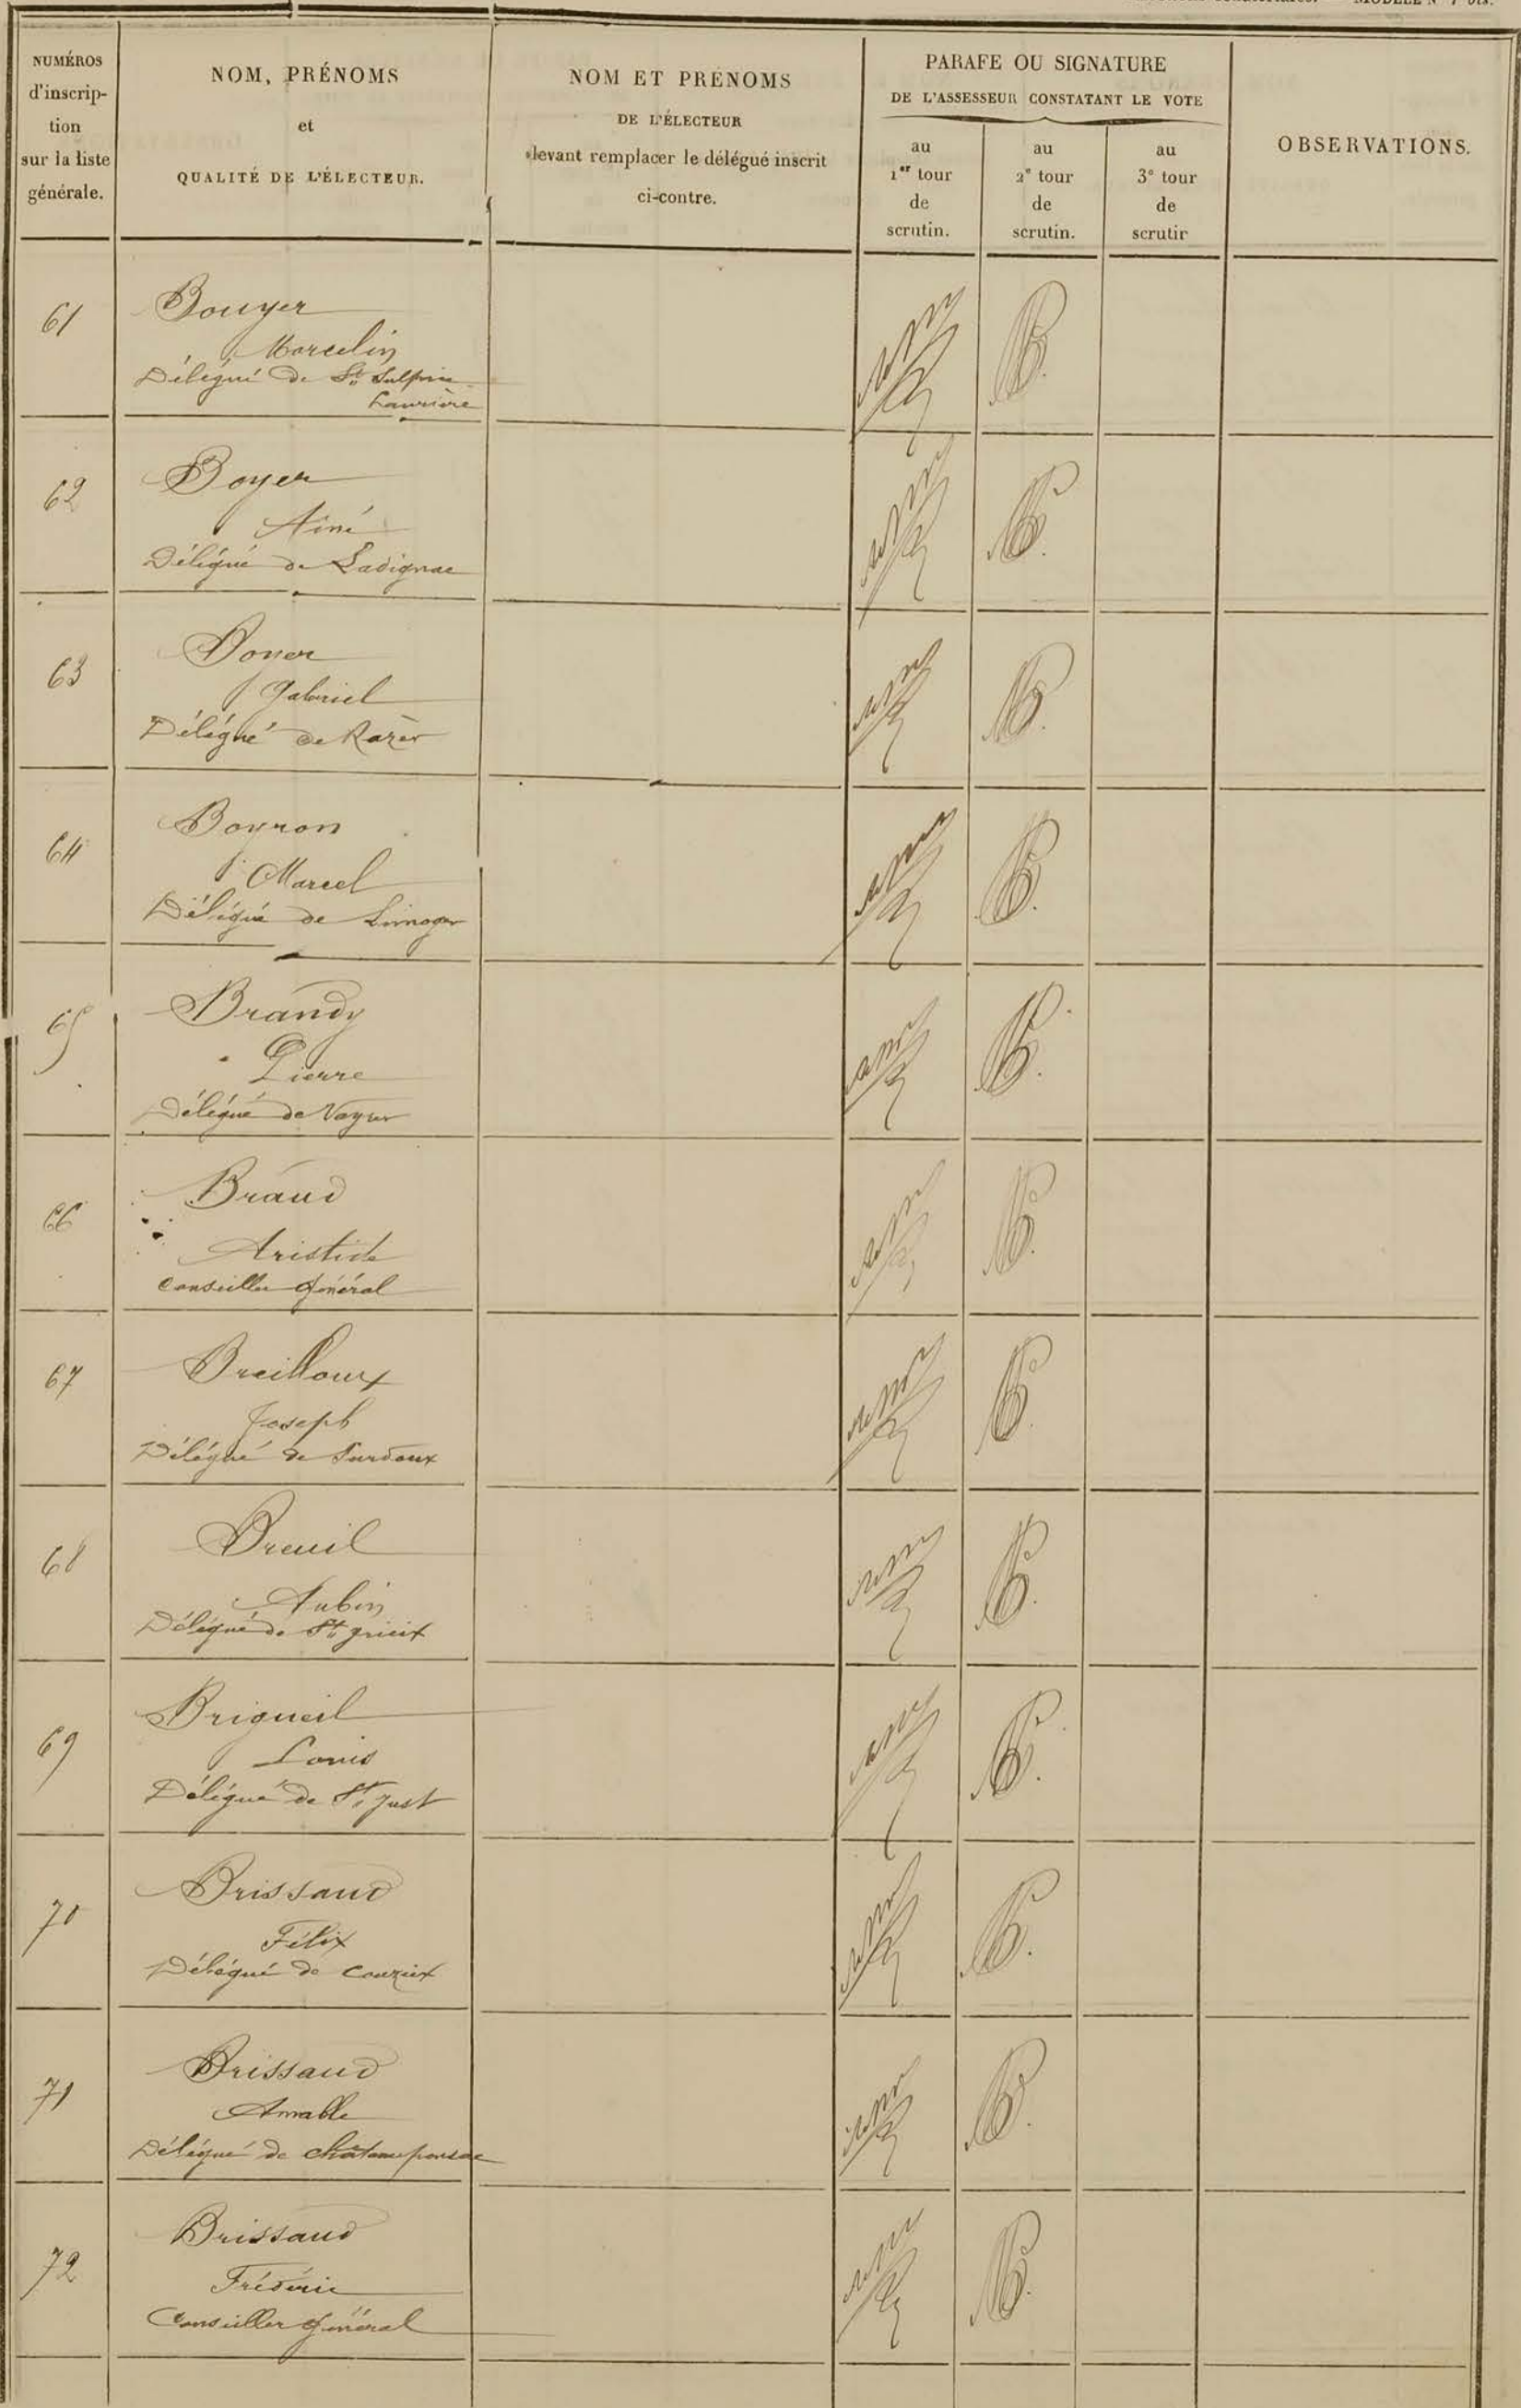 MODÈLE N° 7 bis.
NUMÉROS
d'inscrip-
tion
sur la liste
générale.
NOM, PRÉNOMS
et
QUALITÉ DE L'ÉLECTEUR.
NOM ET PRÉNOMS
DE L'ÉLECTEUR
devant remplacer le délégué inscrit
ci-contre.
PARAFE OU SIGNATURE
DE L'ASSESSEUR CONSTATANT LE VOTE
au
1er tour
de
scrutin.
au
2e tour
de
scrutin.
au
3e tour
de
scrutin
OBSERVATIONS.
61
Bouyer
Marcelin
Délégué de St Sulpice
Laurière
62
Boyer
Aimé
Délégué de Ladignac
63
Boyer
Gabriel
Délégué de Razès
64
Boyron
Marcel
Délégué de Limoges
65
Brandy
Pierre
Délégué de Vayres
66
Braud
Aristide
Conseiller Général
67
Breilloux
Joseph
Délégué de Surdoux
68
Breuil
Aubin
Délégué de St Yrieix
69
Brigueil
Louis
Délégué de St Just
70
Brissaud
Félix
Délégué de Couzeix
71
Brissaud
Amable
Délégué de Châteauponsac
72
Brissaud
Frédéric
Conseiller Général